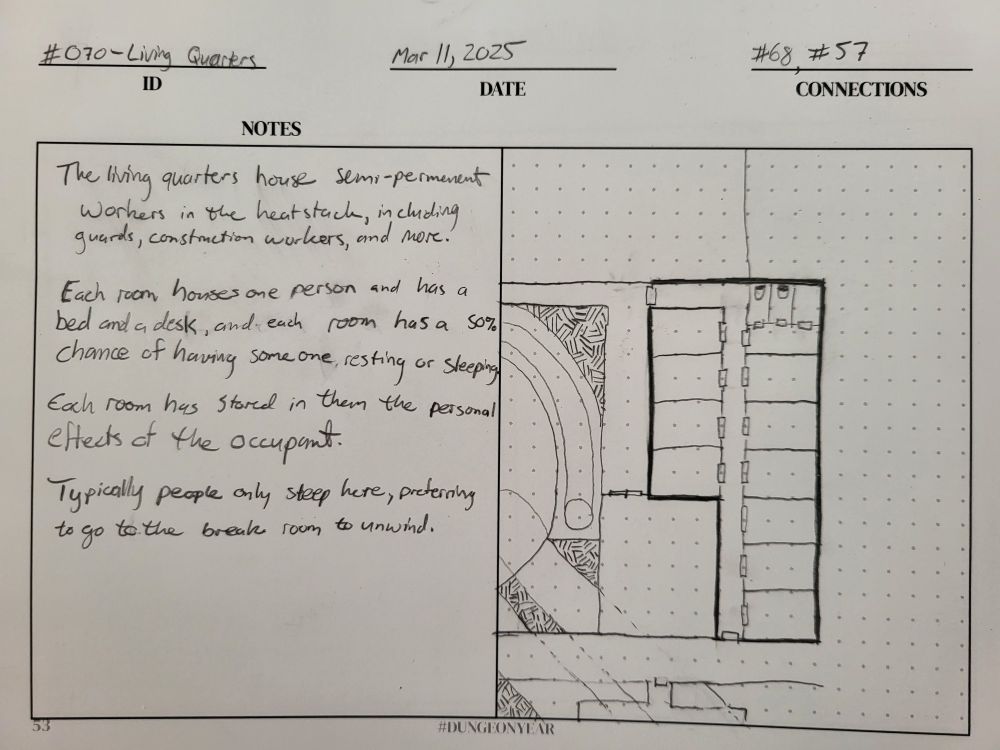 #070-Living Quarters
Mar 11, 2025
#68, #57
ID
DATE
CONNECTIONS
NOTES
The living quarters house semi-permenent
workers in the heatstack, including
guards, construction workers, and more.
Each room houses one person and has a
bed and a desk, and each room has a 50%
chance of having someone resting or sleeping.
Each room has stored in them the personal
effects of the occupant.
Typically people only sleep here, preferring
to go to the break room to unwind.
53
#DUNGEONYEAR